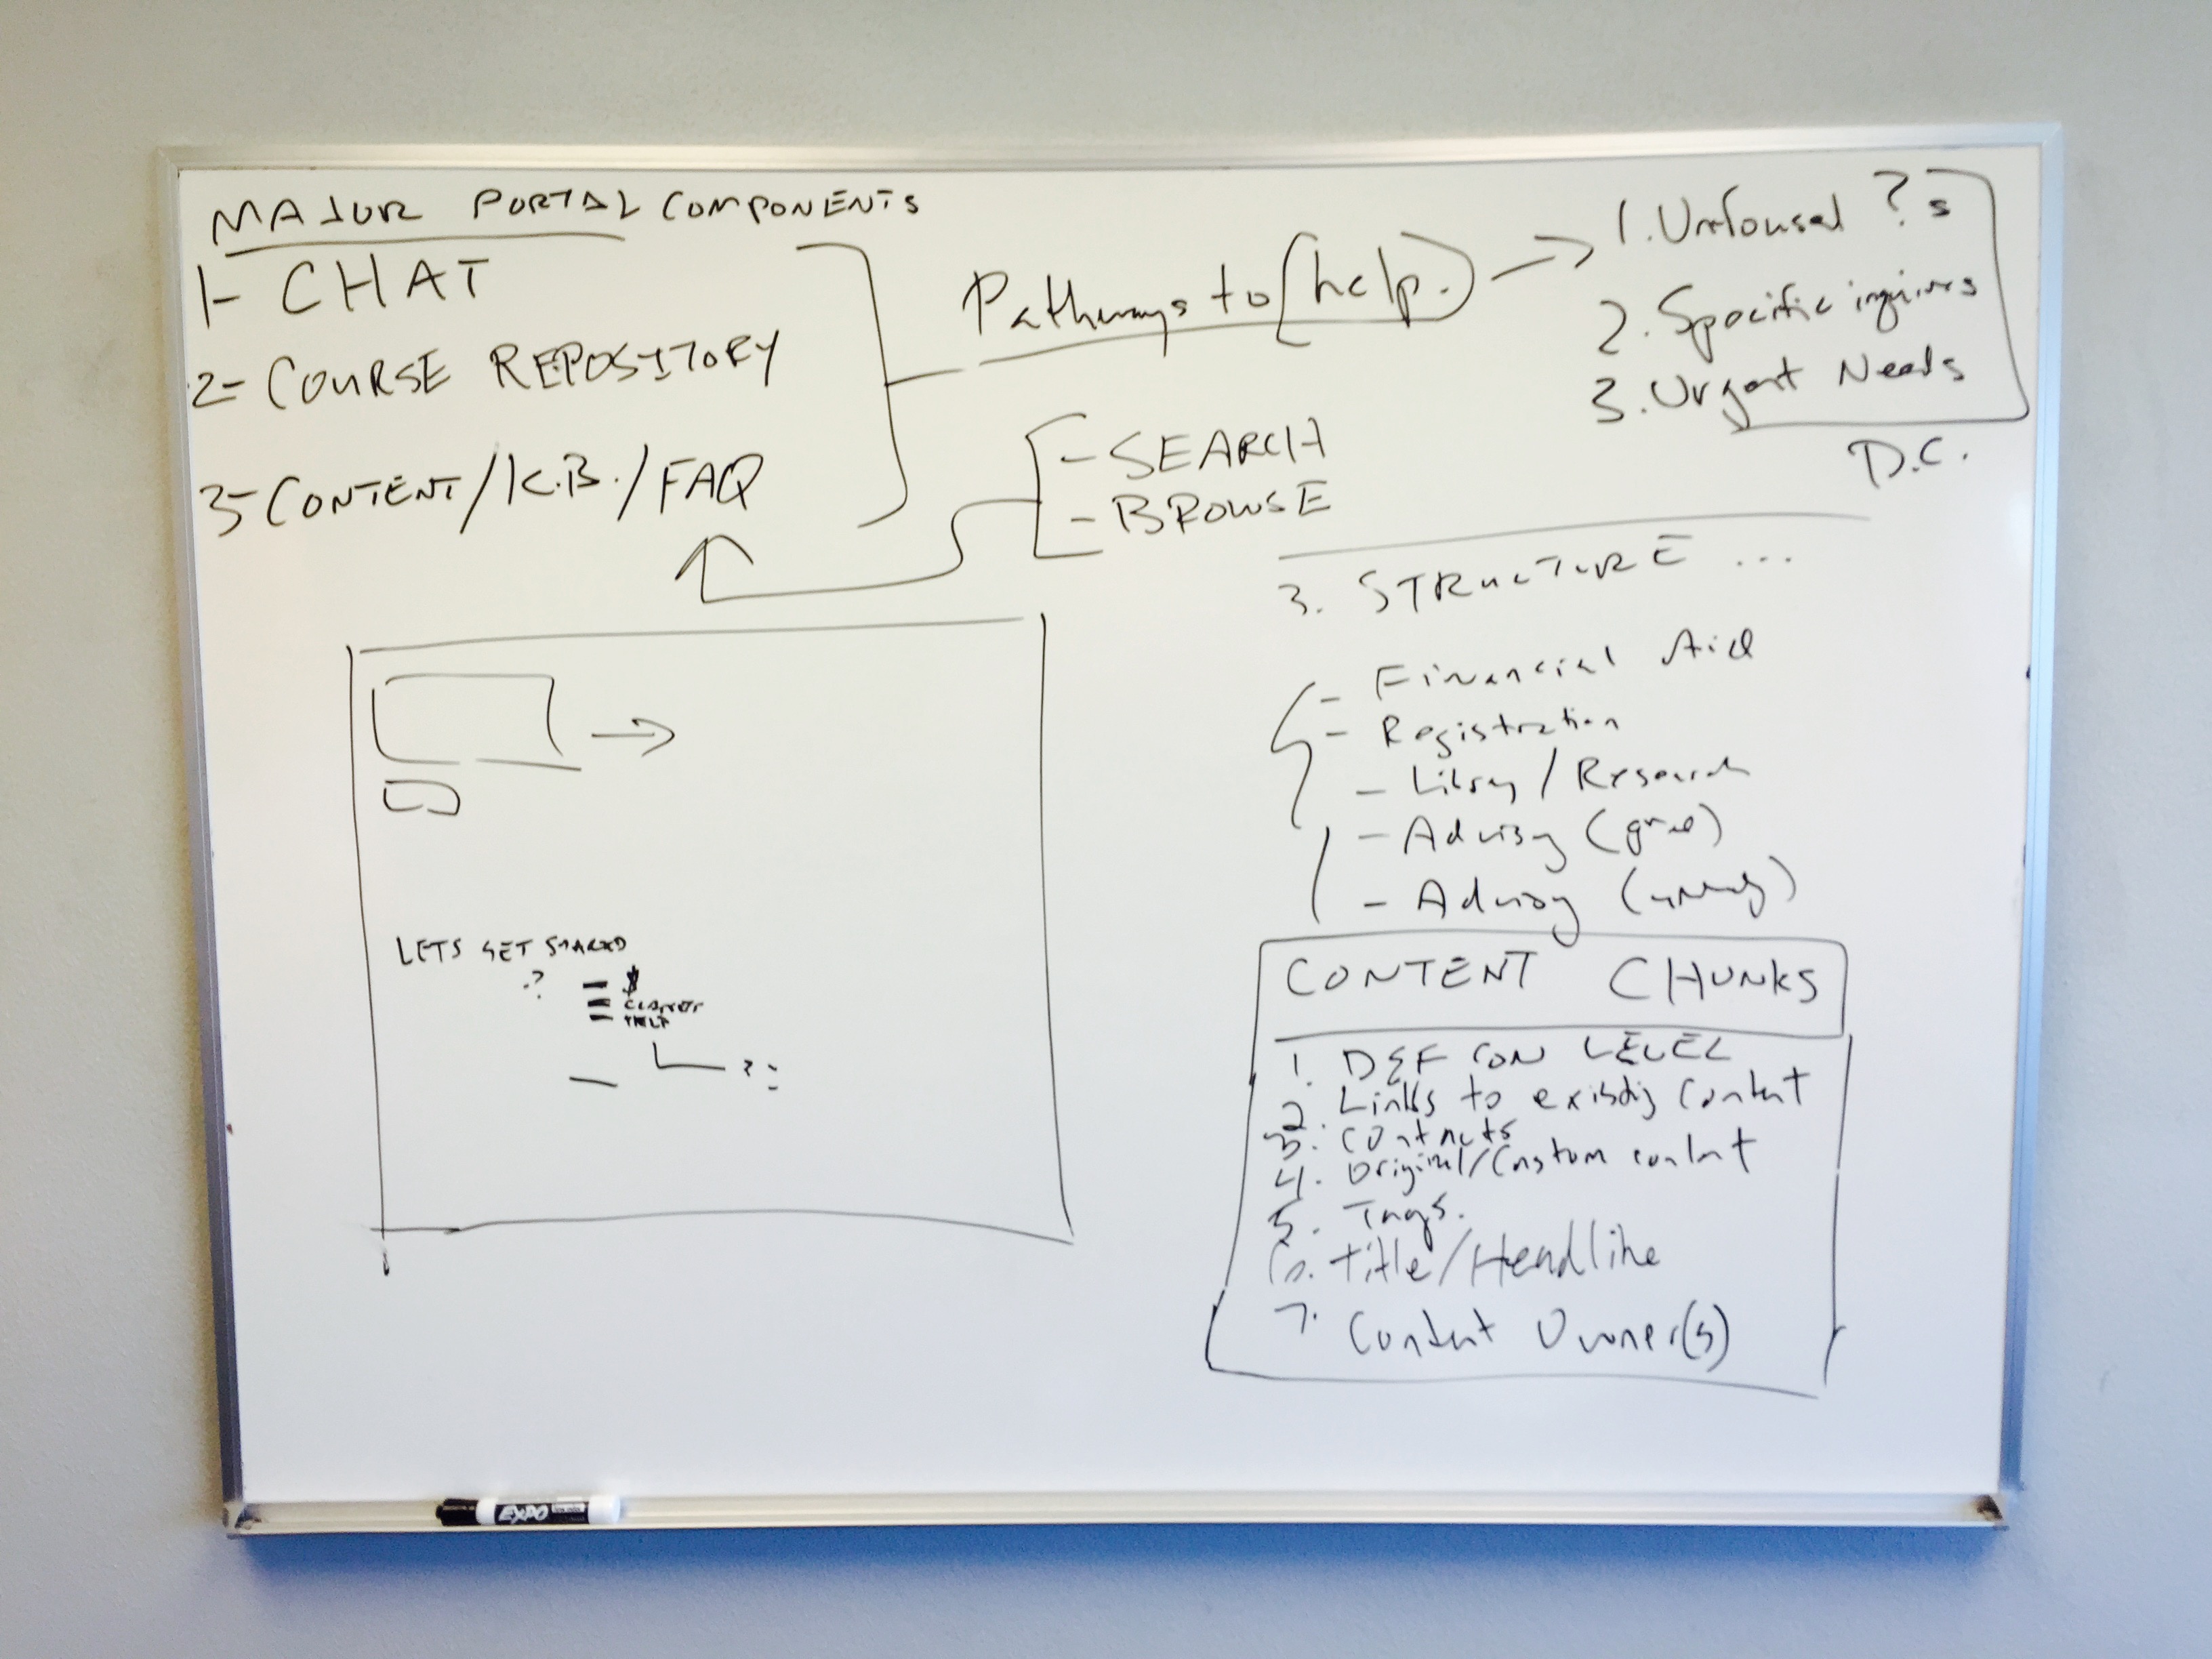 MAJOR PORTAL COMPONENTS
1- CHAT
2- COURSE REPOSITORY
3- CONTENT/K.B./FAQ
Pathways to help.
- SEARCH
- BROWSE
1. Unfoused ?s
2. Specific inquires
3. Urgent Needs
D.C.
3. STRUCTURE ...
- Financial Aid
- Registration
- Library / Research
- Advisy (grad)
- Advisy
LETS GET STARTED
?
- $
-
- HELP
? :
CONTENT CHUNKS
1. DEF CON LEVEL
2. Links to existing content
3. Contacts
4. Original/Custom content
5. Tags.
6. Title/Headline
7. Content Owner(s)
EXPO